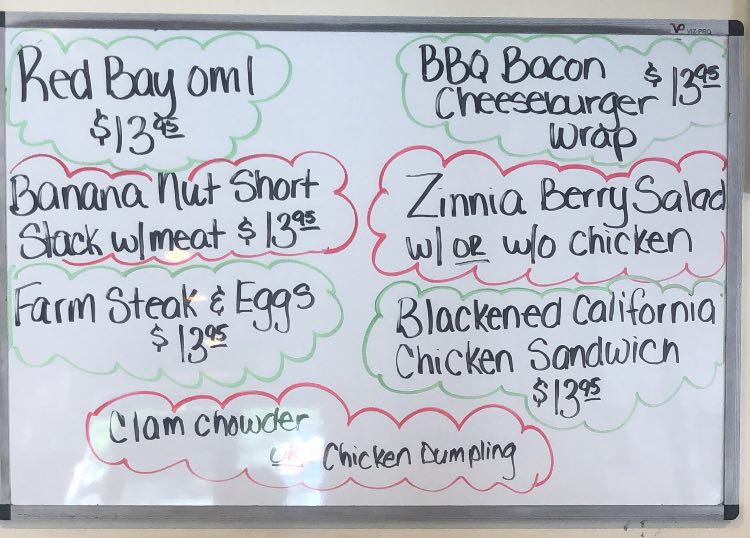 VIZ-PRO
Red Bay oml
$13.95
Banana Nut Short
Stack w/meat $13.95
Farm Steak & Eggs
$13.95
BBQ Bacon $13.95
Cheeseburger
Wrap
Zinnia Berry Salad
w/ or w/o chicken
Blackened California
Chicken Sandwich
$13.95
Clam chowder
or Chicken Dumpling